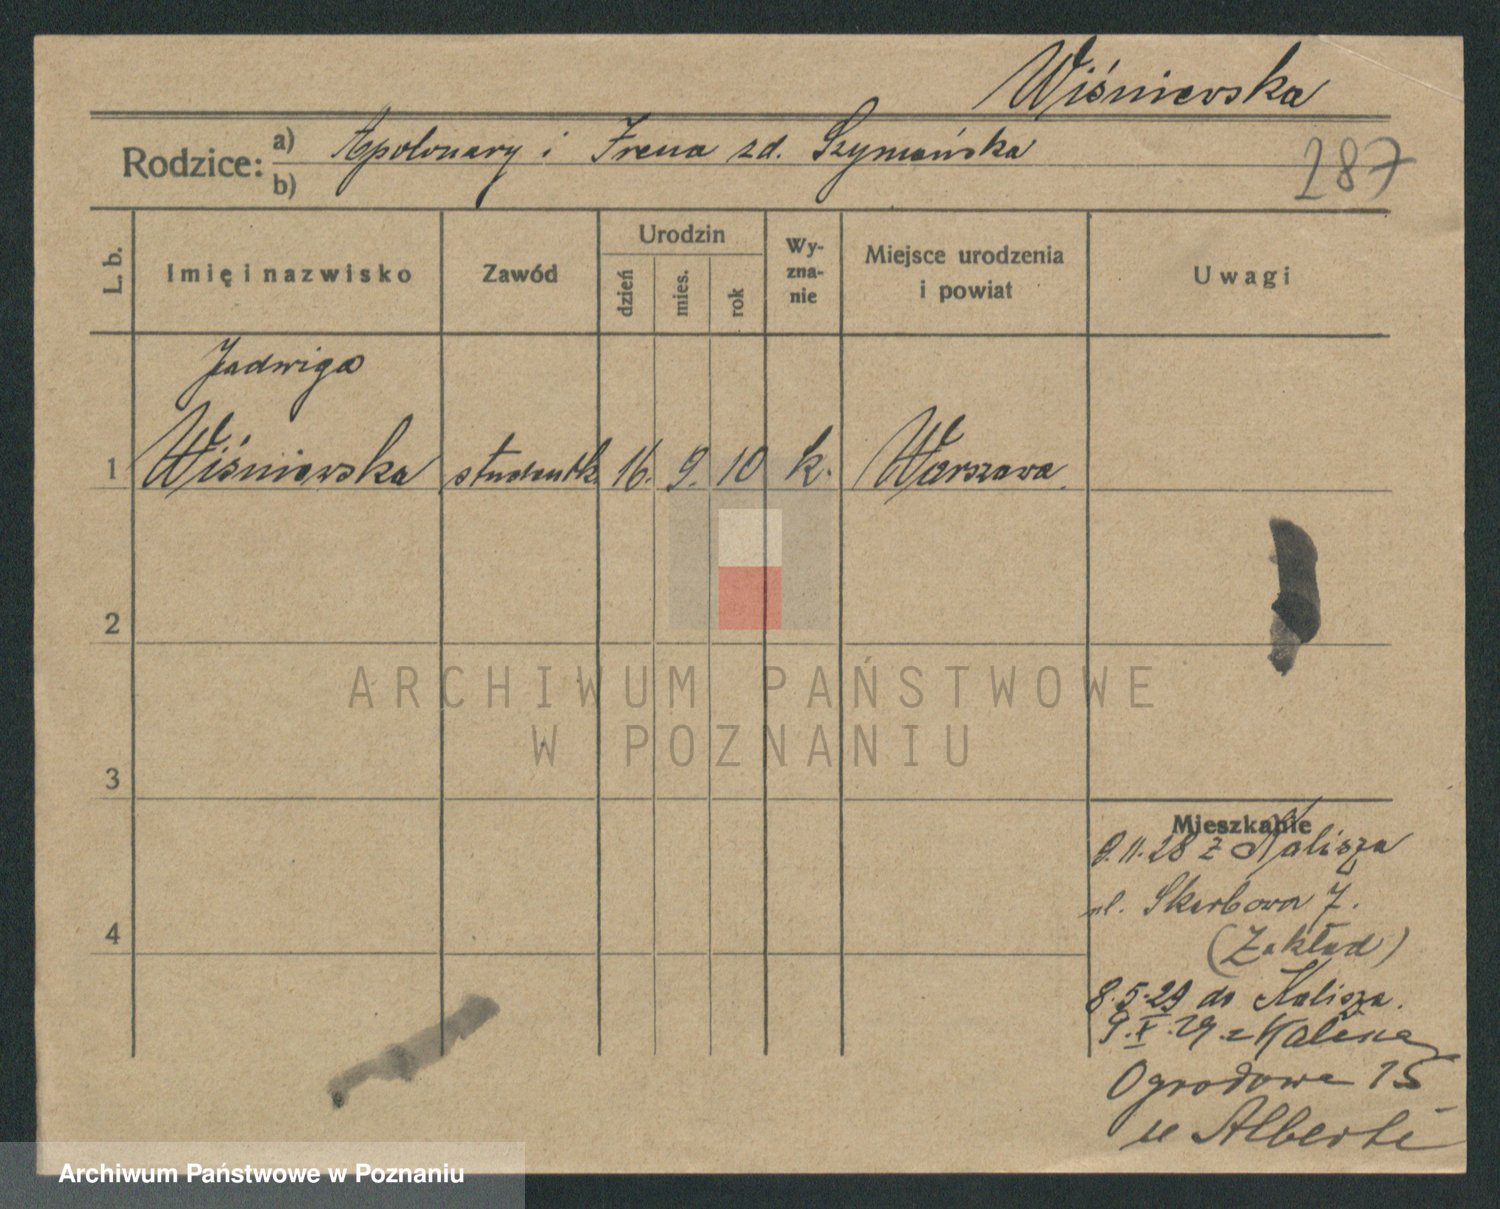 Wiśniewska
Rodzice: a) Apolonary i Irena zd. Szymańska
b)
287
L. b.
Imię i nazwisko
Zawód
Urodzin
dzień
mies.
rok
Wy-
zna-
nie
Miejsce urodzenia
i powiat
Uwagi
Jadwiga
1 Wiśniewska studentk. 16. 9. 10 k. Warszawa.
2
3
4
ARCHIWUM PAŃSTWOWE
W POZNANIU
Mieszkanie
9.11.28 z Kalisza
ul. Skarbowa 7.
(Zakład)
8.5.29 do Kalisza.
9.X.29 z Kalisza
Ogrodowa 15
u Alberti
Archiwum Państwowe w Poznaniu